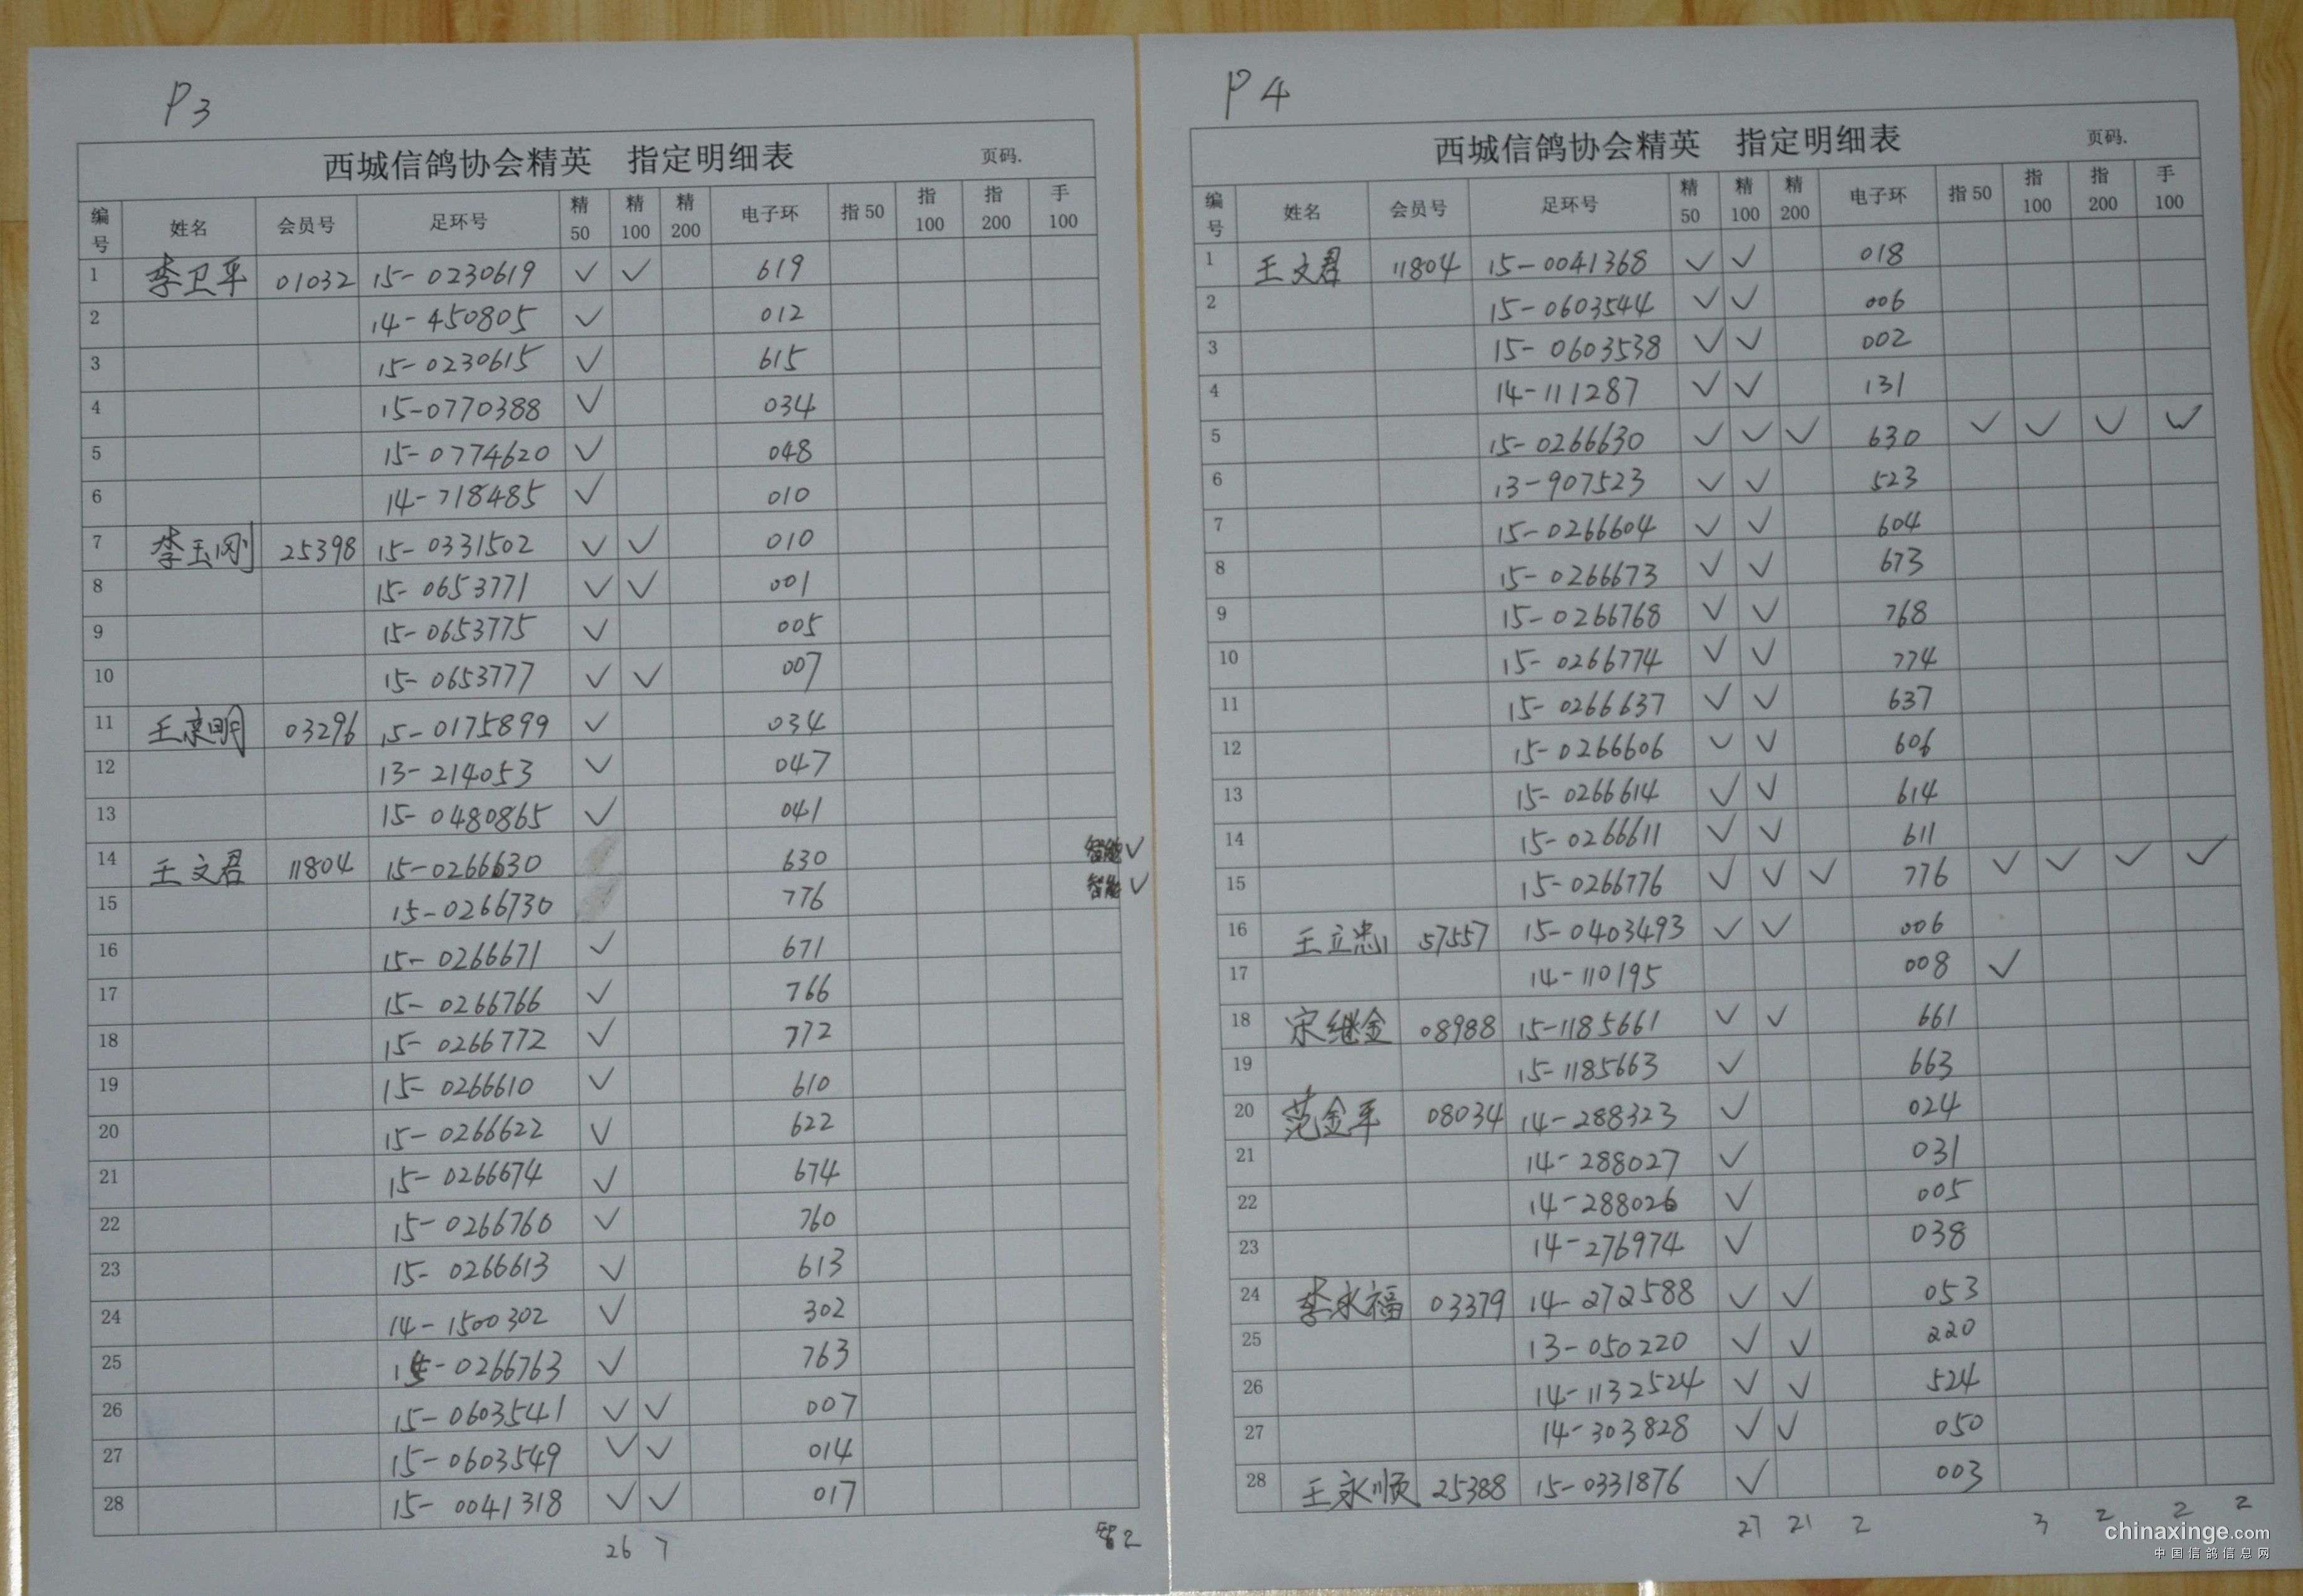 P3
西城信鸽协会精英 指定明细表 页码.
编号 姓名 会员号 足环号 精50 精100 精200 电子环 指50 指100 指200 手100
1 李卫平 01032 15-0230619 ✓ ✓ 619
2 14-450805 ✓ 012
3 15-0230615 ✓ 615
4 15-0770388 ✓ 034
5 15-0774620 ✓ 048
6 14-718485 ✓ 010
7 李玉刚 25398 15-0331502 ✓ ✓ 010
8 15-0653771 ✓ ✓ 001
9 15-0653775 ✓ 005
10 15-0653777 ✓ ✓ 007
11 王京明 03296 15-0175899 ✓ 034
12 13-214053 ✓ 047
13 15-0480865 ✓ 041
14 王文君 11804 15-0266630 630 智能 ✓
15 15-0266730 776 智能 ✓
16 15-0266671 ✓ 671
17 15-0266766 ✓ 766
18 15-0266772 ✓ 772
19 15-0266610 ✓ 610
20 15-0266622 ✓ 622
21 15-0266674 ✓ 674
22 15-0266760 ✓ 760
23 15-0266613 ✓ 613
24 14-1500302 ✓ 302
25 15-0266763 ✓ 763
26 15-0603541 ✓ ✓ 007
27 15-0603549 ✓ ✓ 014
28 15-0041318 ✓ ✓ 017
26 7 智2
P4
西城信鸽协会精英 指定明细表 页码.
编号 姓名 会员号 足环号 精50 精100 精200 电子环 指50 指100 指200 手100
1 王文君 11804 15-0041368 ✓ ✓ 018
2 15-0603544 ✓ ✓ 006
3 15-0603538 ✓ ✓ 002
4 14-111287 ✓ ✓ 131
5 15-0266630 ✓ ✓ ✓ 630 ✓ ✓ ✓ ✓
6 13-907523 ✓ ✓ 523
7 15-0266604 ✓ ✓ 604
8 15-0266673 ✓ ✓ 673
9 15-0266768 ✓ ✓ 768
10 15-0266774 ✓ ✓ 774
11 15-0266637 ✓ ✓ 637
12 15-0266606 ✓ ✓ 606
13 15-0266614 ✓ ✓ 614
14 15-0266611 ✓ ✓ 611
15 15-0266776 ✓ ✓ ✓ 776 ✓ ✓ ✓ ✓
16 王立忠 57557 15-0403493 ✓ ✓ 006
17 14-110195 008 ✓
18 宋继金 08988 15-1185661 ✓ ✓ 661
19 15-1185663 ✓ 663
20 范金平 08034 14-288323 ✓ 024
21 14-288027 ✓ 031
22 14-288026 ✓ 005
23 14-276974 ✓ 038
24 李永福 03379 14-272588 ✓ ✓ 053
25 13-050220 ✓ ✓ 220
26 14-1132524 ✓ ✓ 524
27 14-303828 ✓ ✓ 050
28 王永顺 25388 15-0331876 ✓ 003
27 21 2 3 2 2 2
chinaxinge.com
中国信鸽信息网